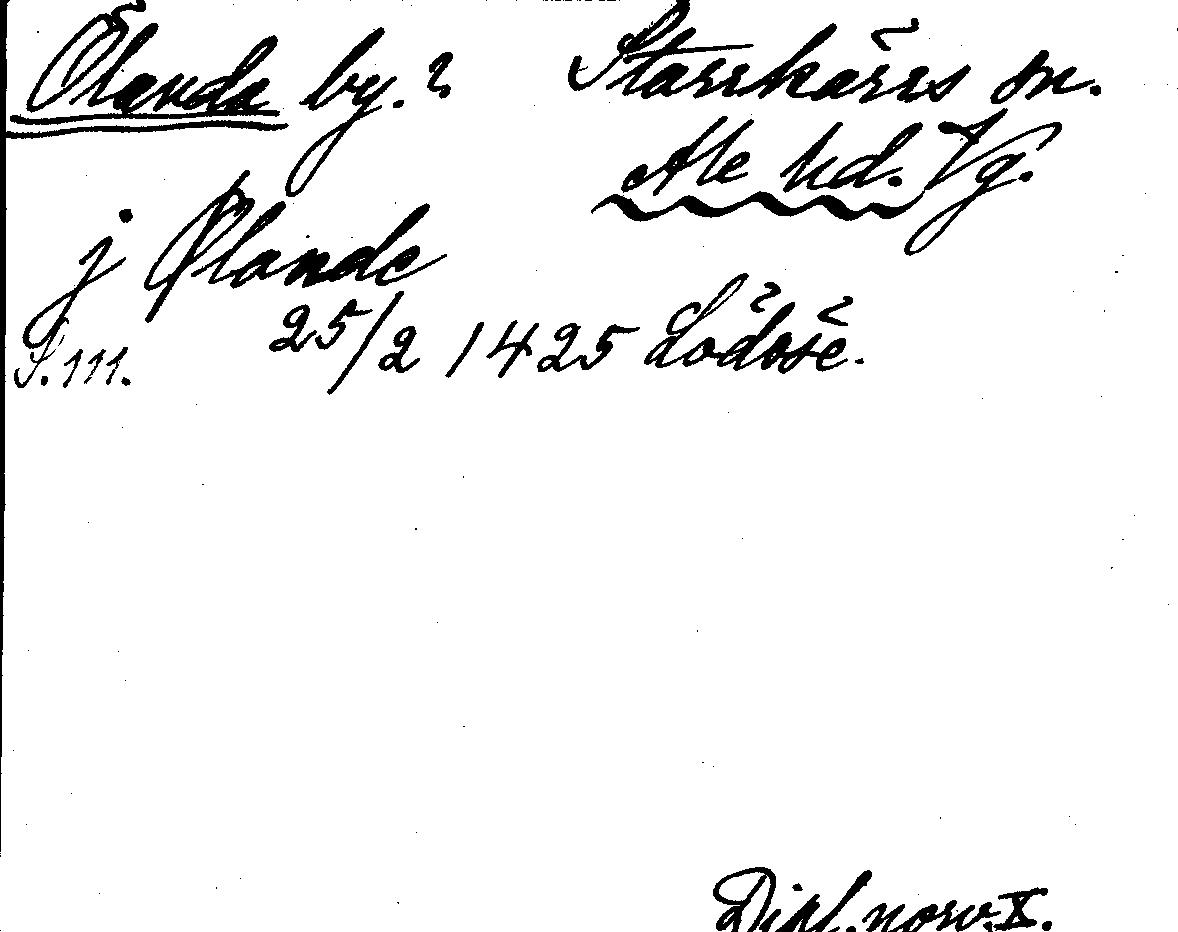 Ölanda by. ? Starrkärrs sn.
Ale hd. Vg.
j Ølande
S. 111. 25/2 1425 Lödöse.
Dipl. norv. X.